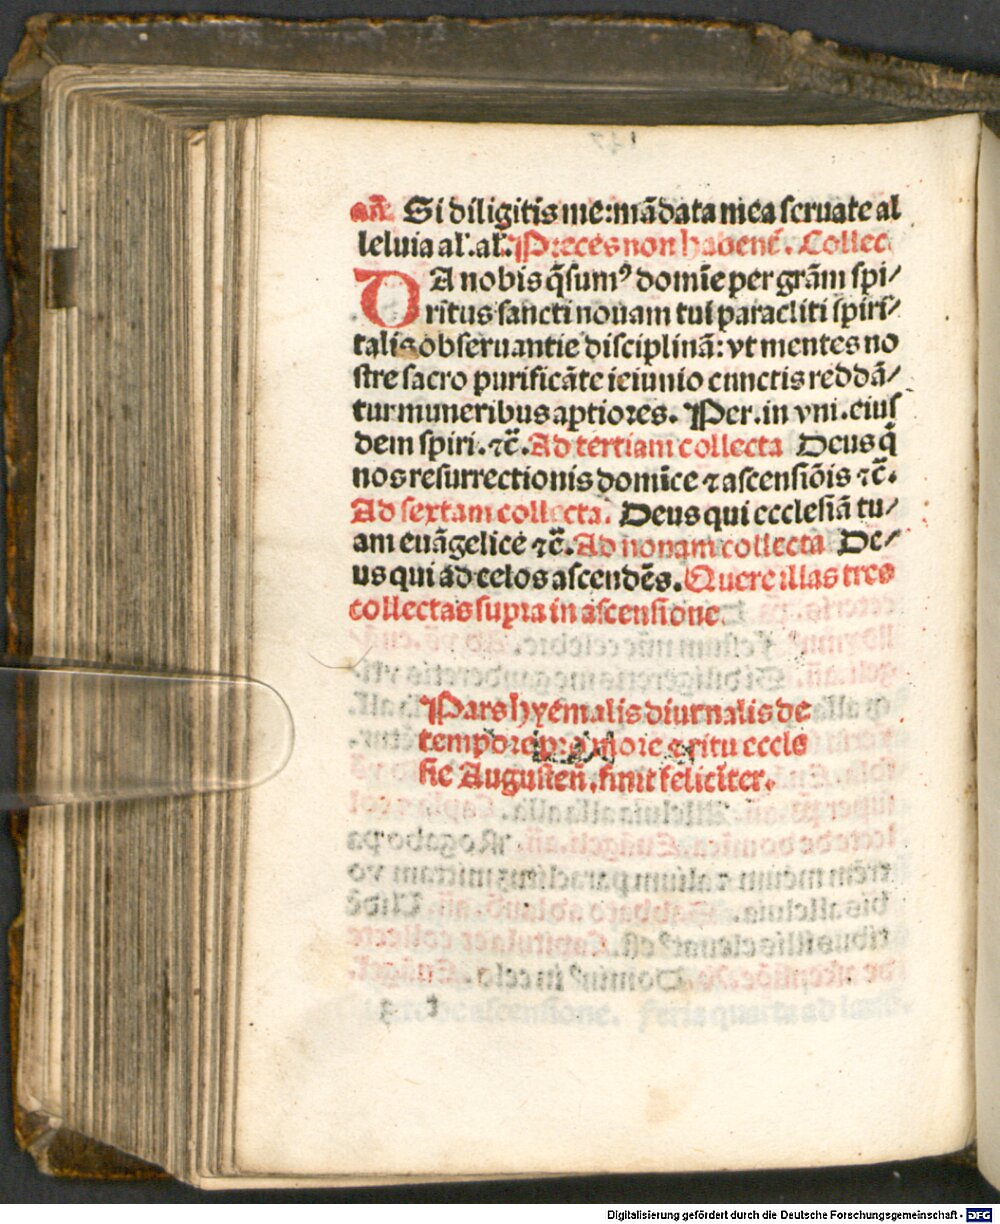 añ. Si diligitis me: mādata mea seruate al
leluia al'. al'. Preces non habent̄. Collec
DA nobis q̄sumꝰ domīe per grām spi/
ritus sancti nouam tui paracliti spiri/
talis obseruantie disciplinā: vt mentes no
stre sacro purificāte ieiunio cunctis reddā/
tur muneribus aptiores. Per. in vni. eius
dem spiri. ⁊c̄. Ad tertiam collecta Deus q̄
nos resurrectionis domīce ⁊ ascensiōis ⁊c̄.
Ad sextam collecta. Deus qui ecclesiā tu/
am euāgelice ⁊c̄. Ad nonam collecta De/
us qui ad celos ascendēs. Quere illas tres
collectas supra in ascensione.
Pars hyemalis diurnalis de
tempore pro more ⁊ ritu eccle
sie Augusteñ. finit feliciter.
Digitalisierung gefördert durch die Deutsche Forschungsgemeinschaft - DFG